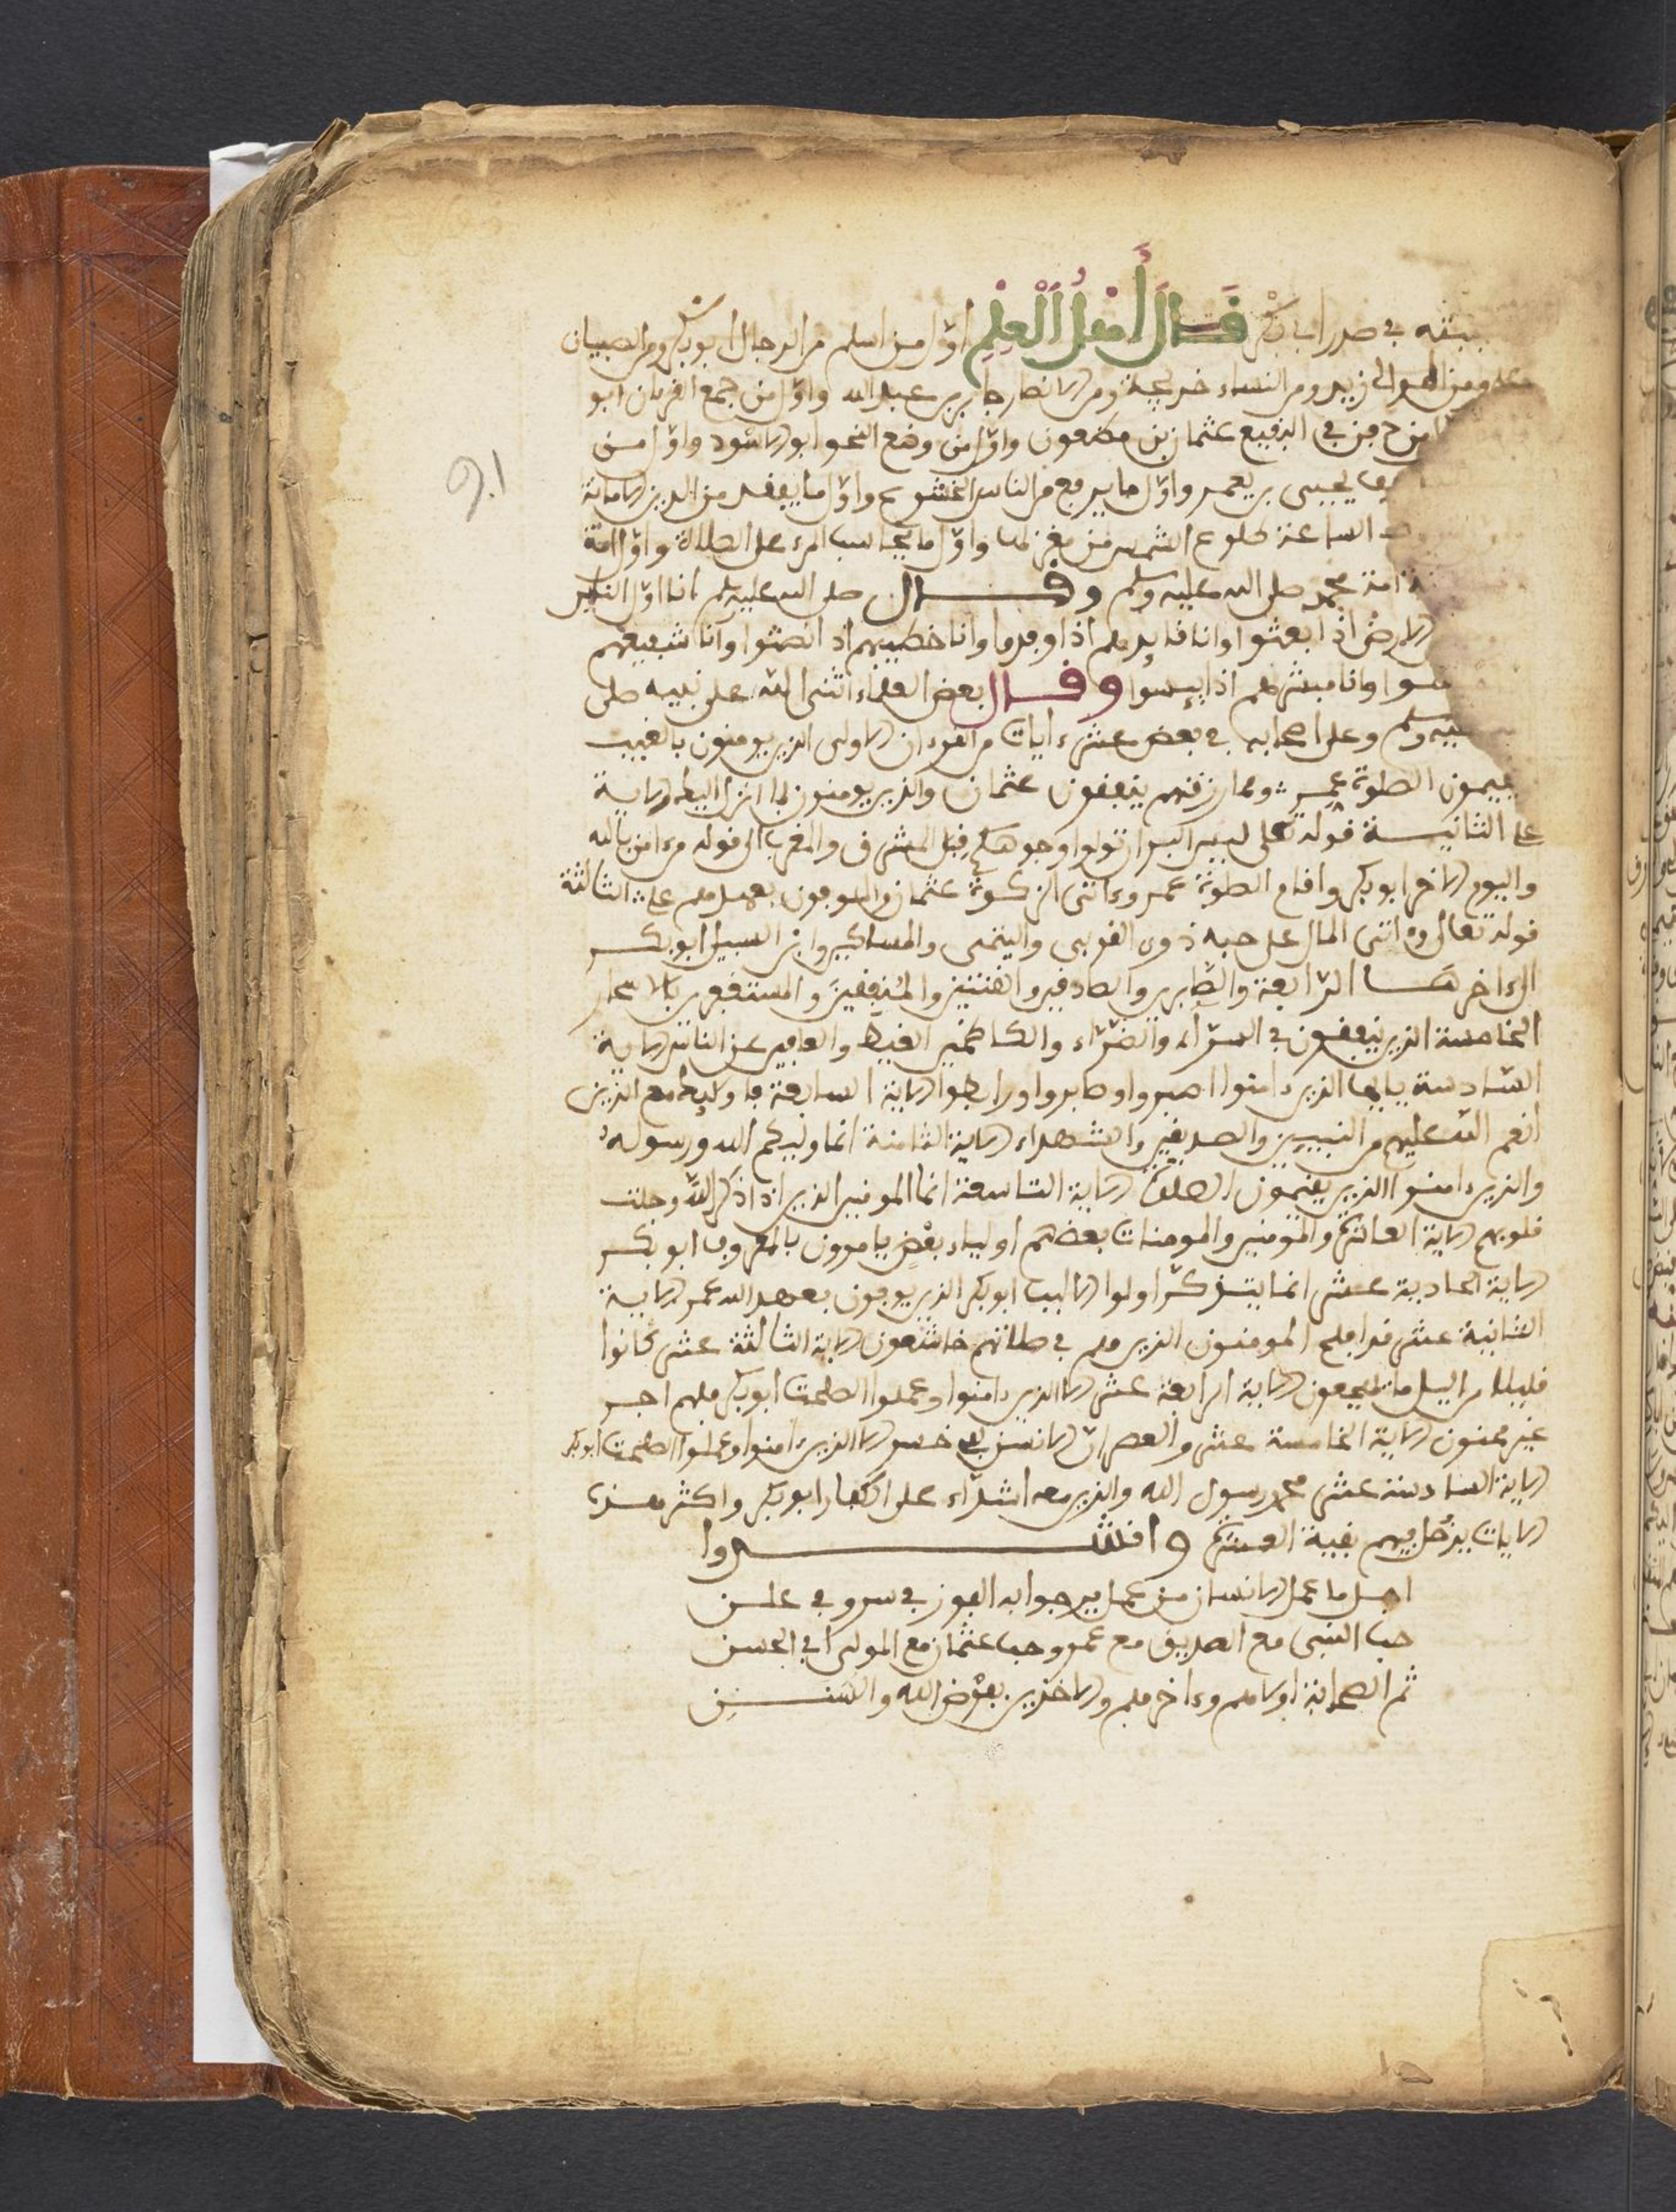 بثته في صدر ابي بكر قَالَ أَهْلُ الْعِلْمِ اوّل من اسلم من الرجال ابو بكر ومن الصبيان
ومن الموالي زيد ومن النساء خديجة ومن الانصار جابر بن عبد الله واوّل من جمع القرءان ابو
من دفن في البقيع عثمان بن مظعون واوّل من وضع النحو ابو الاسود واوّل من
يحيى بن يعمر واوّل ما يرفع من الناس الخشوع واوّل ما يفقد من الدين الامانة
الساعة طلوع الشمس من مغربها واوّل ما يحاسب المرء على الصلاة واوّل امة
امة محمد صلى الله عليه وسلم وقـــال صلى الله عليه وسلم انا اوّل الناس
الارض اذا بعثوا وانا قايدهم اذا وفدوا وانا خطيبهم اذ انصتوا وانا شفيعهم
وانا مبشرهم اذا ييسوا وقـــال بعض العلماء اثنى الله على نبيه صلى
وسلم وعلى اصحابه في بعض عشر ءايات من القرءان الاولى الذين يومنون بالغيب
يقيمون الصلوة عمر ومما رزقنهم ينفقون عثمان والذين يومنون بما انزل اليك الاية
على الثانيـة قوله تعلى ليس البر ان تولوا وجوهكم قبل المشرق والمغرب الى قوله من ءامن بالله
واليوم الاخر ابو بكر واقام الصلوة عمر وءاتى الزكوة عثمان والموفون بعهدهم على الثالثة
قوله تعالى وءاتى المال على حبه ذوي القربى واليتمى والمساكين وابن السبيل ابو بكـر
الى ءاخرهـا الرّابعة والصّابرين والصادقين والقنتين والمُنفِقينَ والمستغفرين بالاسحار
الخامسة الذين ينفقون في السرّاء والضرّاء والكاظمين الغيظ والعافين عن الناس الاية
السّادسة يايها الذين ءامنوا اصبروا وصابروا ورابطوا الاية السابعة فاوليك مع الذين
انعم الله عليهم من النبيين والصديقين والشهداء الاية الثامنة انما وليكم الله ورسوله
والذين ءامنوا الذين يقيمون الصلوة الاية التاسعة انما المومنين الذين اذا ذكر الله وجلت
قلوبهم الاية العاشرة والمومنين والمومنات بعضهم اولياء بعْضٍ يامرون بالمعروف ابو بكـر
الاية الحادية عشر انما يتذكّر اولوا الالبب ابو بكر الذين يوفون بعهد الله عمر الايـة
الثانية عشر قد افلح المومنون الذين هم في صلاتهم خاشعون الاية الثالثة عشر كانوا
قليلا من اليل ما يهجعون الاية الرابعة عشر الا الذين ءامنوا وعملوا الصلحت ابو بكر فلهم اجـر
غير ممنون الاية الخامسة عشر والعصر انّ الانسن لفي خسر الا الذين ءامنوا وعملوا الصلحت ابو بكر
الاية السادسة عشر محمد رسول الله والذين معه اشدّاء على الكفار ابو بكر واكثر هـذه
الايات يدْخل فيهم بقية العشرة وانشـــــــدوا
اجـل ما عمل الانسان من عمل يرجوا به الفوز في سر وفي علـن
حب النبي مع الصديق مع عمر وحب عثمان مع المولى ابي الحسن
ثم الصحابة اولاهم وءاخرهم والاخذين بفرْض الله والسّنـنِ